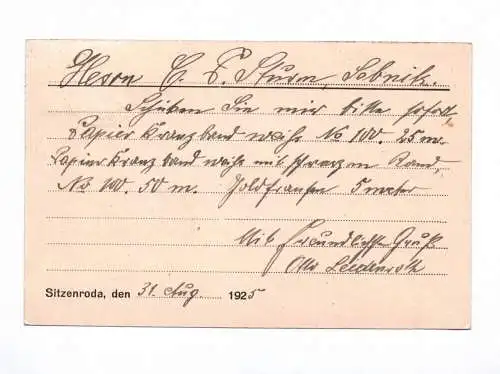 Herrn C. F. Sturm, Sebnitz.
Schicken Sie mir bitte sofort,
Papier Kranzband weiß No 100. 25 m.
Papier Kranzband weiß mit schwarzem Rand,
No 100. 50 m. Goldfransen 5 meter
Mit Freundlichen Gruß
Otto Leidenroth
Sitzenroda, den 31. Aug. 1925